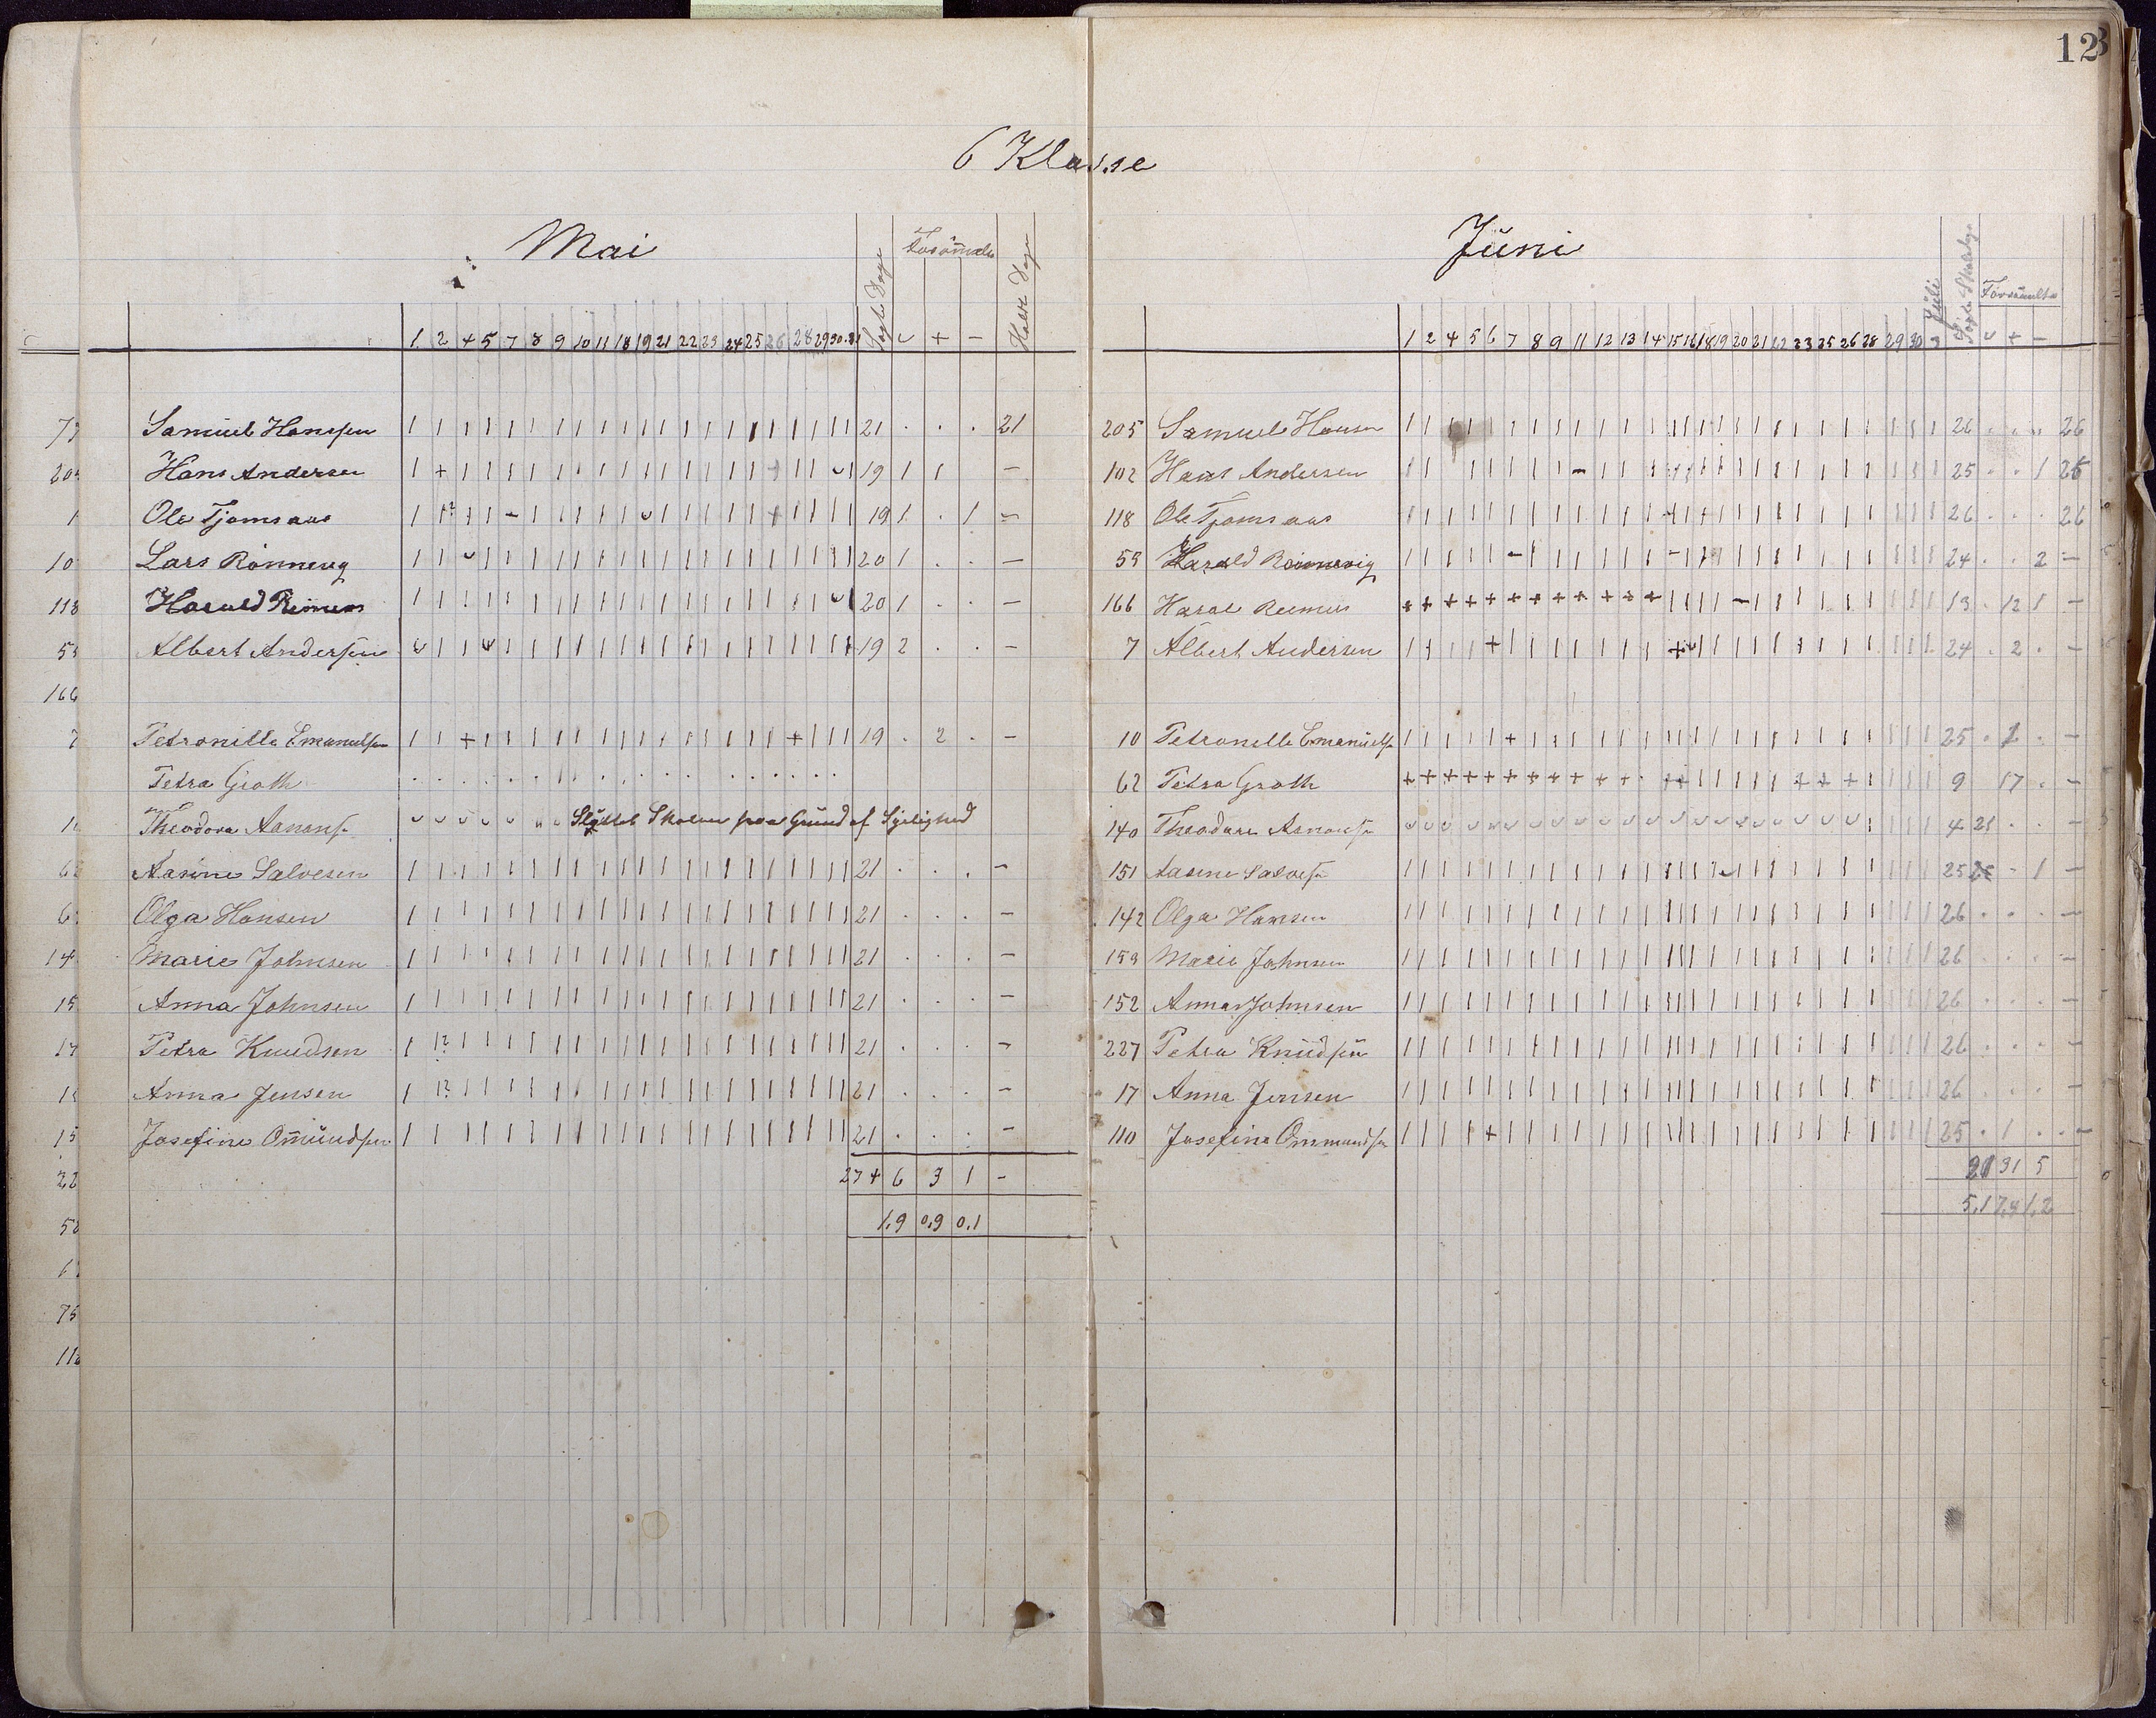 12
6 Klasse
Mai
Søgte Dage Forsømte Halve Dage
1 2 4 5 7 8 9 10 11 18 19 21 22 23 24 25 26 28 29 30 31 ⌣ + -
Samuel Hanssen 21 . . . 21
Hans Andersen 19 1 1 -
Ole Tjomsaas 19 1 . 1 -
Lars Rönnevig 20 1 . . -
Harald Reimers 20 1 . . -
Albert Andersen 19 2 . . -
Petronille Emanuelsen 19 . 2 . -
Petra Groth
Theodora Aanons. Sluttet Skolen paa Grund af Sygelighed
Aasine Salvesen 21 . . . -
Olga Hansen 21 . . . -
Marie Johnsen 21 . . . -
Anna Johnsen 21 . . . -
Petra Knudsen 21 . . . -
Anna Jensen 21 . . . -
Josefine Omundsen 21 . . . -
274 6 3 1 -
1,9 0,9 0,1
Juni
Juli Søgte Skoledage Forsømte
1 2 4 5 6 7 8 9 11 12 13 14 15 16 18 19 20 21 22 23 25 26 28 29 30 ⌣ + -
205 Samuel Hansen 26 . . . 26
102 Hans Andersen 25 . . 1 25
118 Ole Tjomsaas 26 . . . 26
55 Harald Rönnevig 24 . . 2 -
166 Haral Reimers 13 . 12 1 -
7 Albert Andersen 24 . 2 . -
10 Petronelle Emanuels. 25 . 1 . -
62 Petra Groth 9 17 . -
140 Theodora Aanons. 4 21 . . -
151 Aasine Salves. 25 . 1 -
142 Olga Hansen 26 . . . -
153 Marie Johnsen 26 . . . -
152 Anna Johnsen 26 . . . -
227 Petra Knudsen 26 . . . -
17 Anna Jensen 26 . . . -
110 Josefine Ommunds. 25 . 1 . . -
21 31 5
5,1 7,4 1,2